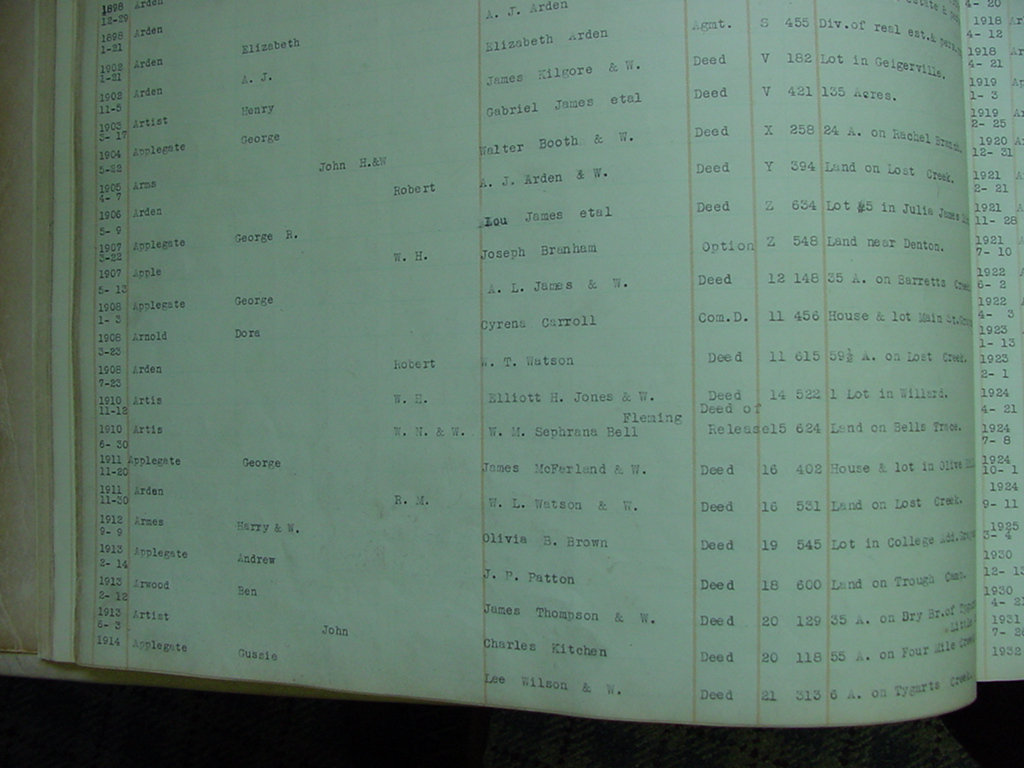 1898 Arden A. J. Arden
12-29
1898 Arden Elizabeth Elizabeth Arden Agmt. S 455 Div. of real est.&
1-21
1902 Arden A. J. James Kilgore & W. Deed V 182 Lot in Geigerville.
1-21
1902 Arden Henry Gabriel James etal Deed V 421 135 Acres.
11-5
1903 Artist George Walter Booth & W. Deed X 258 24 A. on Rachel Branch.
3-17
1904 Applegate John H.&W A. J. Arden & W. Deed Y 394 Land on Lost Creek.
5-22
1905 Arms Robert Lou James etal Deed Z 634 Lot #5 in Julia James
4- 7
1906 Arden George R. Joseph Branham Option Z 548 Land near Denton.
5- 9
1907 Applegate W. H. A. L. James & W. Deed 12 148 35 A. on Barretts Creek
3-22
1907 Apple George Cyrena Carroll Com.D. 11 456 House & lot Main St.
5- 13
1908 Applegate Dora W. T. Watson Deed 11 615 59½ A. on Lost Creek.
1- 3
1908 Arnold Robert Elliott H. Jones & W. Deed 14 522 1 Lot in Willard.
3-23
1908 Arden W. H. Fleming Deed of
7-23
1910 Artis W. N. & W. W. M. Sephrana Bell Release 15 624 Land on Bells Trace.
11-12
1910 Artis George James McFerland & W. Deed 16 402 House & lot in Olive
6- 30
1911 Applegate R. M. W. L. Watson & W. Deed 16 531 Land on Lost Creek.
11-20
1911 Arden Harry & W. Olivia B. Brown Deed 19 545 Lot in College Add.
11-30
1912 Armes Andrew J. P. Patton Deed 18 600 Land on Trough Camp.
9- 9
1913 Applegate Ben James Thompson & W. Deed 20 129 35 A. on Dry Br. of Tygarts
2- 14
1913 Arwood John Charles Kitchen Deed 20 118 55 A. on Four Mile Creek
2- 12 Little
1913 Artist Gussie Lee Wilson & W. Deed 21 313 6 A. on Tygarts Creek.
6- 3
1914 Applegate
4- 20
1918
4- 12
1918
4- 21
1919
1- 3
1919
2- 25
1920
12- 31
1921
2- 21
1921
11- 28
1921
7- 10
1922
6- 2
1922
4- 3
1923
1- 13
1923
2- 1
1924
4- 21
1924
7- 8
1924
10- 1
1924
9- 11
1925
3- 4
1930
12- 13
1930
4- 2
1931
7- 2
1932